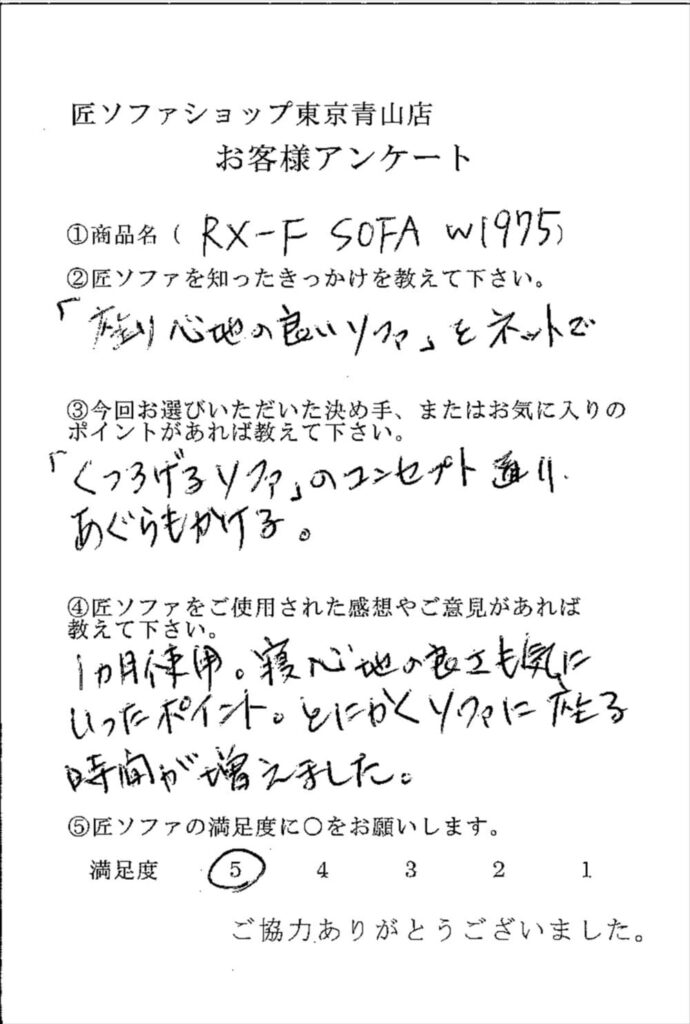 匠ソファショップ東京青山店
お客様アンケート
①商品名（ RX-F SOFA W1975）
②匠ソファを知ったきっかけを教えて下さい。
「座り心地の良いソファ」とネットで
③今回お選びいただいた決め手、またはお気に入りの
ポイントがあれば教えて下さい。
「くつろげるソファ」のコンセプト通り.
あぐらもかける。
④匠ソファをご使用された感想やご意見があれば
教えて下さい。
1ヵ月使用。寝心地の良さも気に
いったポイント。とにかくソファに座る
時間が増えました。
⑤匠ソファの満足度に○をお願いします。
満足度 5 4 3 2 1
ご協力ありがとうございました。